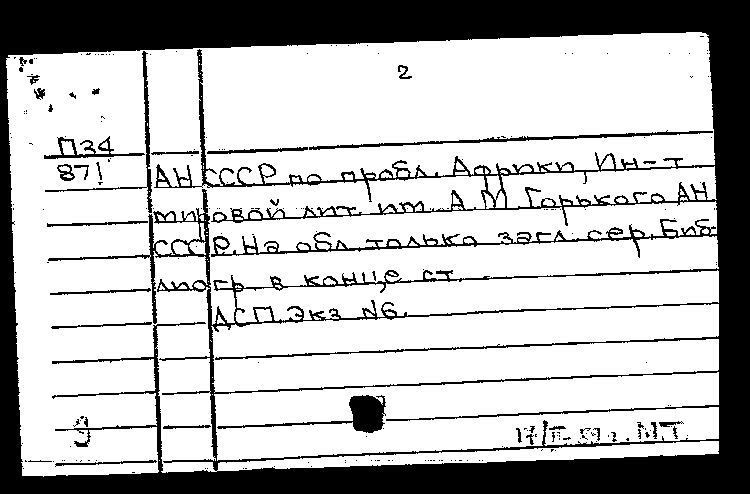 2
П34
871
АН СССР по пробл. Африки, Ин-т
мировой лит. им. А.М. Горького АН
СССР. На обл. только загл. сер. Биб-
лиогр. в конце ст.
ДСП. Экз №6.
9
М.Т.